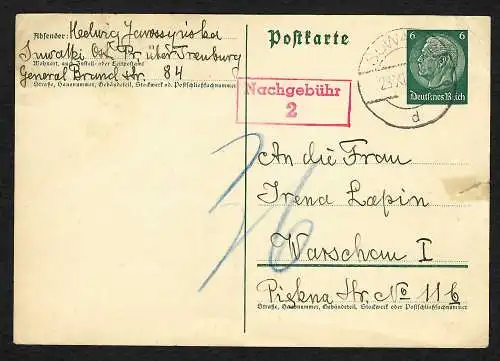 Absender: Hedwig Jarossyńska
Suwalki Ost Pr. über Treuburg
Wohnort, auch Zustell- oder Leitpostamt
General Brund Str. 84
Straße, Hausnummer, Gebäudeteil, Stockwerk od. Postschließfachnummer
Postkarte
6 6
Deutsches Reich
SUWAL
d
Nachgebühr
2
An die Frau
Irena Lapin
Warschau I
Piękna Str. No 11 b
Straße, Hausnummer, Gebäudeteil, Stockwerk oder Postschließfachnummer